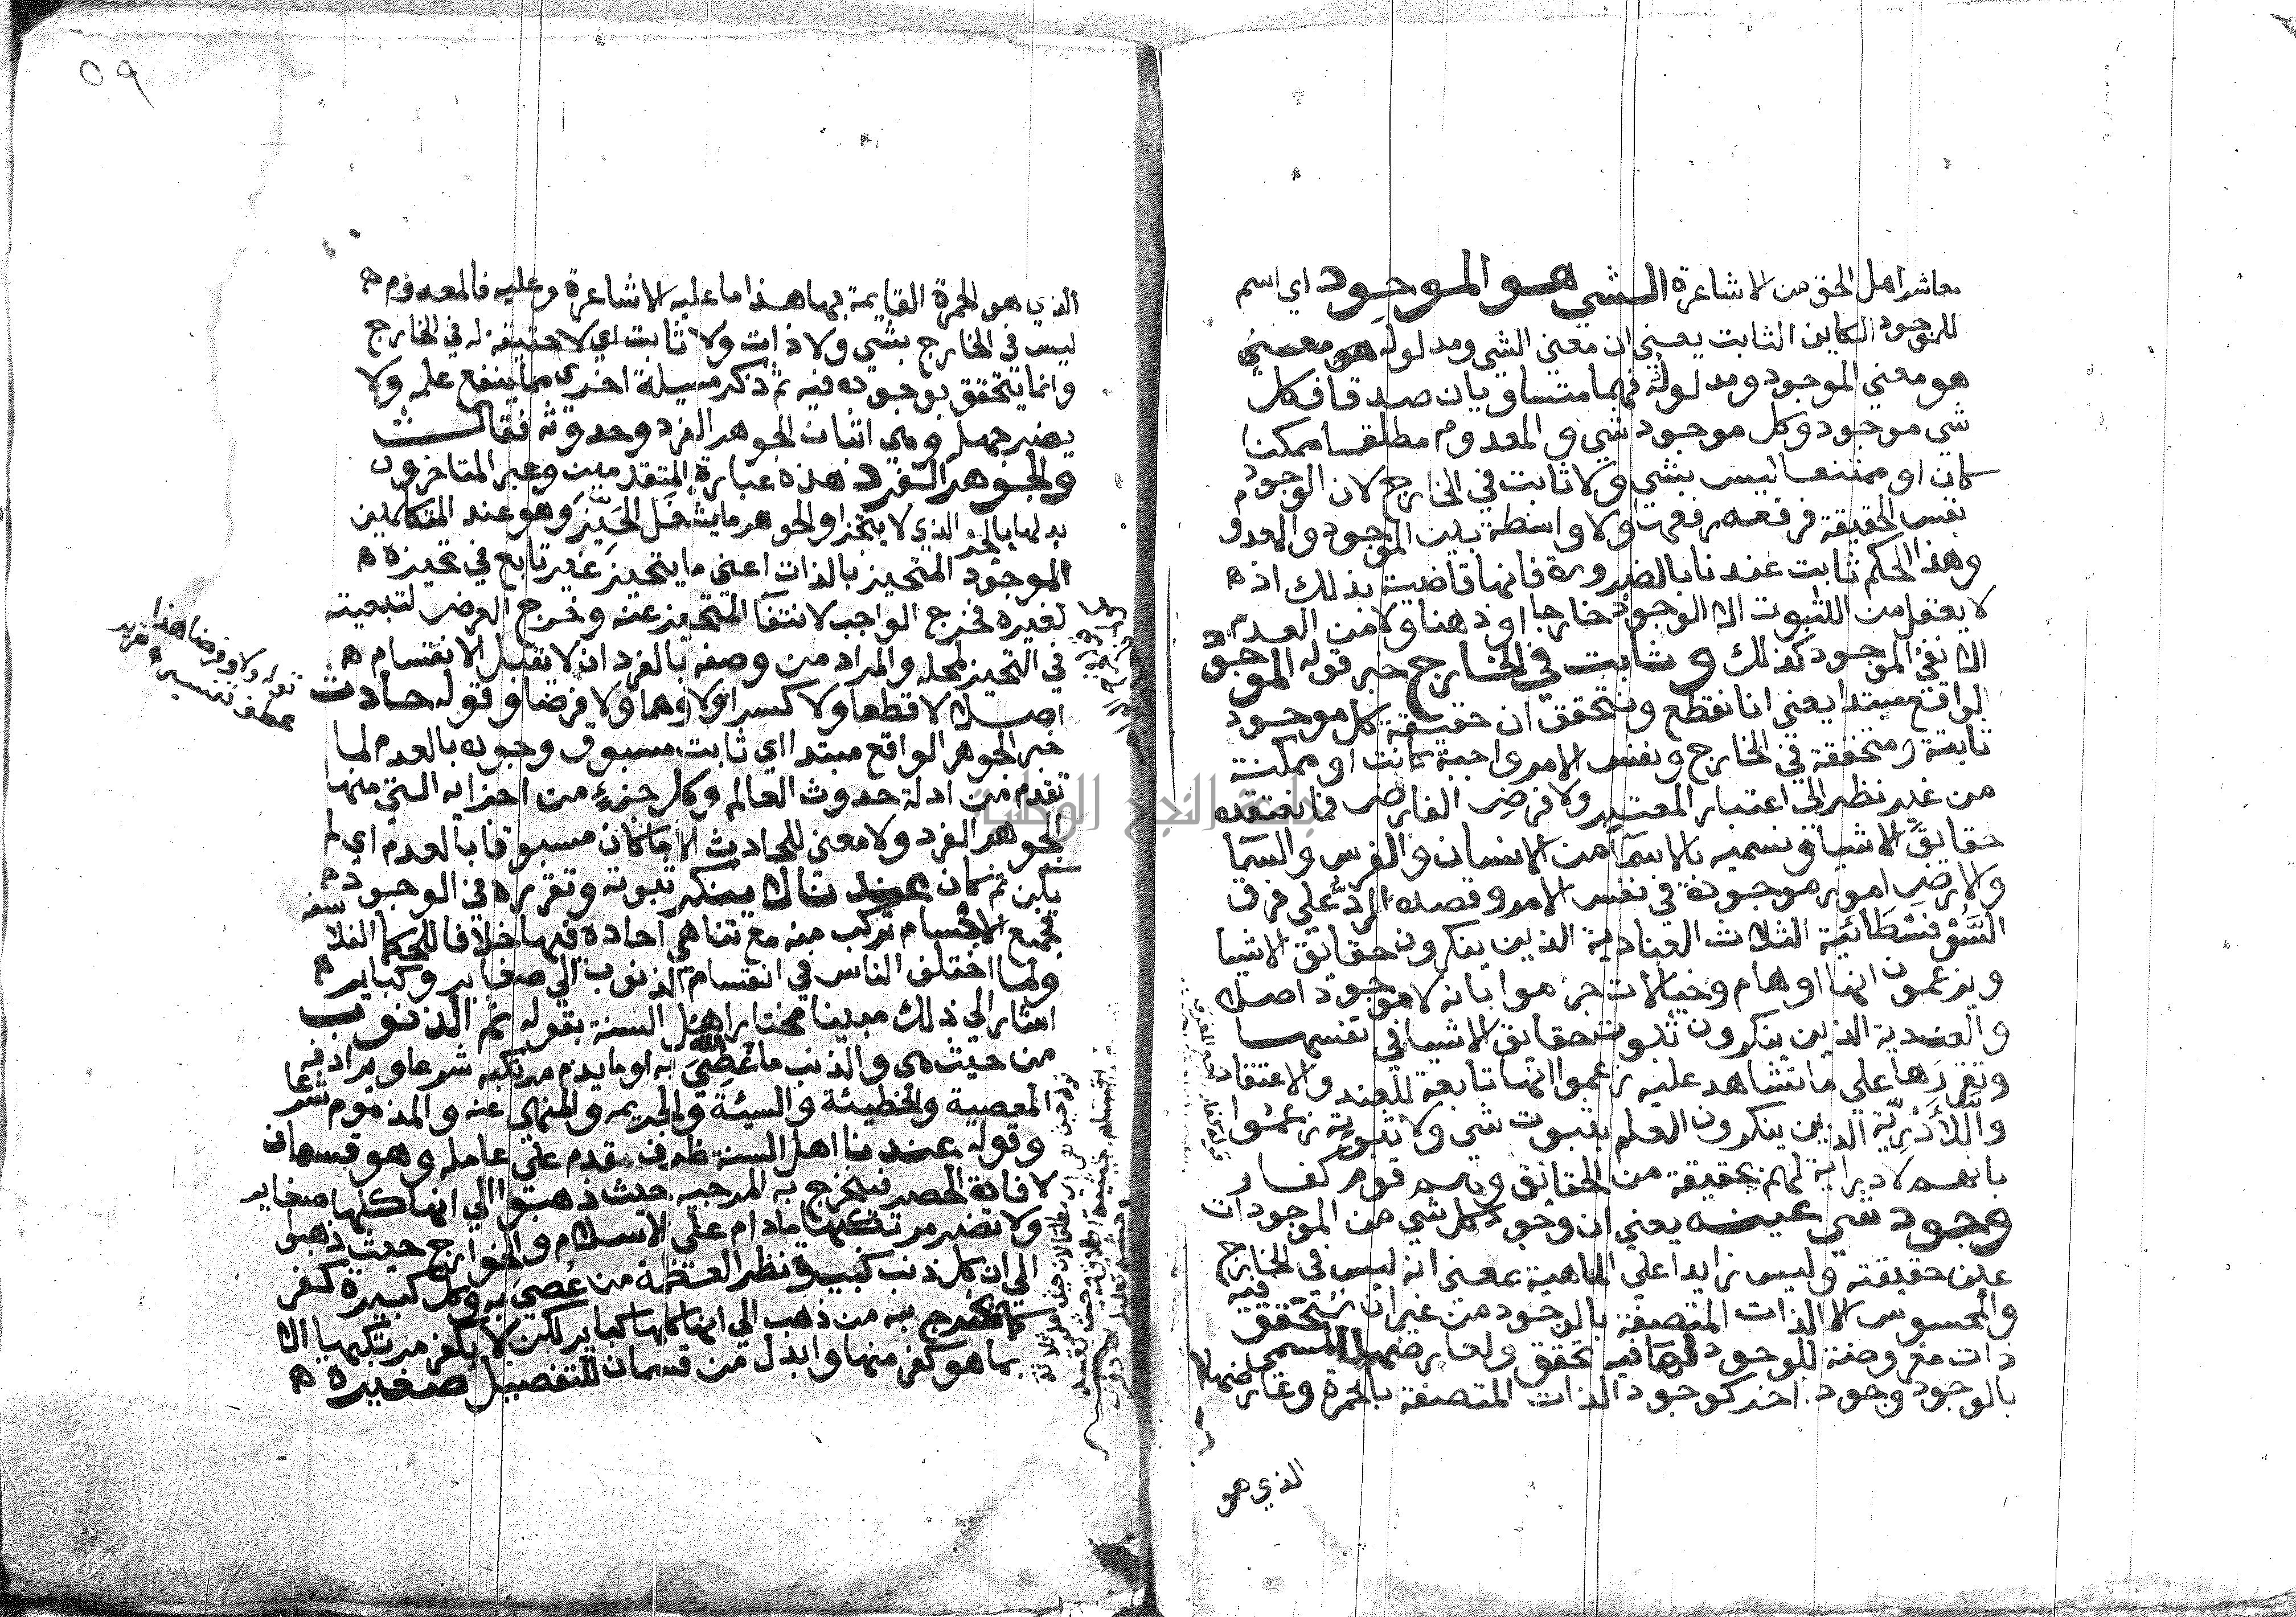 معاشر اهل الحق من الاشاعرة الشي هو الموجود اي اسم
للموجود الكاين الثابت يعني ان معني الشي ومدلوله هو معني
هو معني الموجود ومدلوله فهما متساويان صدقا فكل
شي موجود وكل موجود شي والمعدوم مطلقا ممكنا
كان او ممتنعا ليس بشي ولا ثابت في الخارج لان الوجود
نفس الحقيقة فرفعه رفعها ولا واسطة بين الموجود والمعدوم
وهذا الحكم ثابت عندنا بالضرورة فانها قاضية بذلك اذ ه
لا يعقل من الثبوت الا الوجود خارجا او ذهنا ولا من العدم
الا نفي الموجود كذلك و ثابت في الخارج خبر قوله الموجود
الواقع مبتدا يعني انا نقطع ونتحقق ان حقيقة كل موجود
ثابتة ومتحققة في الخارج ونفس الامر واجبة كانت او ممكنة
من غير نظر الي اعتبار المعتبر ولا فرض الفارض فما نعتقده
حقايق الاشيا ونسميه بالاسما من الانسان والفرس والسما
والارض امور موجودة في نفس الامر وقصده الرد علي فرق
السوفسطائية الثلاث العنادية الذين ينكرون حقايق الاشيا
ويزعمون انها اوهام وخيالات جزموا بانه لا موجود اصلا
والعندية الذين ينكرون ثبوت حقايق الاشيا في نفسها
وتقررها علي ما تشاهد عليه زعموا انها تابعة للعند والاعتقاد
واللاأدرية الذين ينكرون العلم بثبوت شي ولا ثبوته زعموا
بانهم لا دراية لهم بحقيقة من الحقائق وهم قوم كفار
وجود شي عينه يعني ان وجود كل شي من الموجودات
عين حقيقته وليس زايدا علي الماهية بمعني انه ليس في الخارج
والمحسوس الا الذات المتصفة بالوجود من غير ان يتحقق فيه
ذات معروضة للوجود لها فيه تحقق ولعارضها المسمي
بالوجود وجود اخر كوجود الذات المتصفة بالحمرة وعارضها
الذي هو
٥٩
الذي هو الحمرة القايمة بها هذا ما عليه الاشاعرة وعليه فالمعدوم ه
ليس في الخارج بشي ولا ذات ولا ثابت اي لا حقيقة له في الخارج
وانما يتحقق بوجوده فيه ثم ذكر مسيلة اخري مما ينفع علمه ولا
يضر جهله وهي اثبات الجوهر الفرد وحدوثه فقالـــت
والجوهر الفرد هذه عبارة المتقدمين وعبر المتاخرون
بدلها بالجزء الذي لا يتجزا والجوهر ما يشغل الحيز وهو عند المتكلمين
الموجود المتحيز بالذات اعني ما يتحيز غير تابع في تحيزه ه
لغيره فخرج الواجب لانتفا التحيز عنه وخرج العرض لتبعيته
في التحيز لمحله والمراد من وصفه بالفرد انه لا يقبل الانقسام ه
اصلا لا قطعا ولا كسرا ولا وهما ولا فرضا وقوله حادث
خبر الجوهر الواقع مبتدا اي ثابت مسبوق وجوده بالعدم لما
تقدم من ادلة حدوث العالم وكل جزء من اجزايه التي منها
الجوهر الفرد ولا معني للحادث الا ما كان مسبوقا بالعدم اي لم
يكن ثم كان عندنا لا ينكر ثبوته وتقرره في الوجود ه
فجميع الاجسام تركب منه مع تناهي آحاده فيها خلافا للحكما الفلاسفه
ولما اختلف الناس في انقسام الذنوب الي صغاير وكباير ه
اشار الي ذلك مبينا مختار اهل السنة بقوله ثم الذنوب
من حيث هي والذنب ما عصي الله به او ما يذم مرتكبه شرعا ويرادفه
المعصية والخطيئة والسيئة والجريمه والمنهي عنه والمذموم شرعا
وقوله عندنا اهل السنة ظرف مقدم علي عامله وهو قسمان
لافادة الحصر فيخرج به المرجيه حيث ذهبوا الي انها كلها صغاير
ولا تضر مرتكبها ما دام علي الاسلام والخوارج حيث ذهبوا
الي ان كل ذنب كبيرة نظر العظمة من عصي به وكل كبيرة كفر
كما يخرج به من ذهب الي انها كلها كباير لكن لا يكفر مرتكبها الا
بما هو كفر منها وابدل من قسمان للتفصيل صغيرة ه
قوله ولا فرضا هذا
عطف تفسير
جامعة النجاح الوطنية